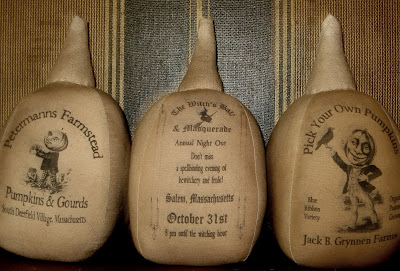 Petermanns Farmstead
Pumpkins & Gourds
South Deerfield Village, Massachusetts
The Witch's Ball
& Masquerade
Annual Night Out
Don't miss
a spellbinding evening of
bewitchery and frolic!
Salem, Massachusetts
October 31st
8 pm until the witching hour
Pick Your Own Pumpkin
Blue
Ribbon
Variety
Jack B. Grynnen Farms